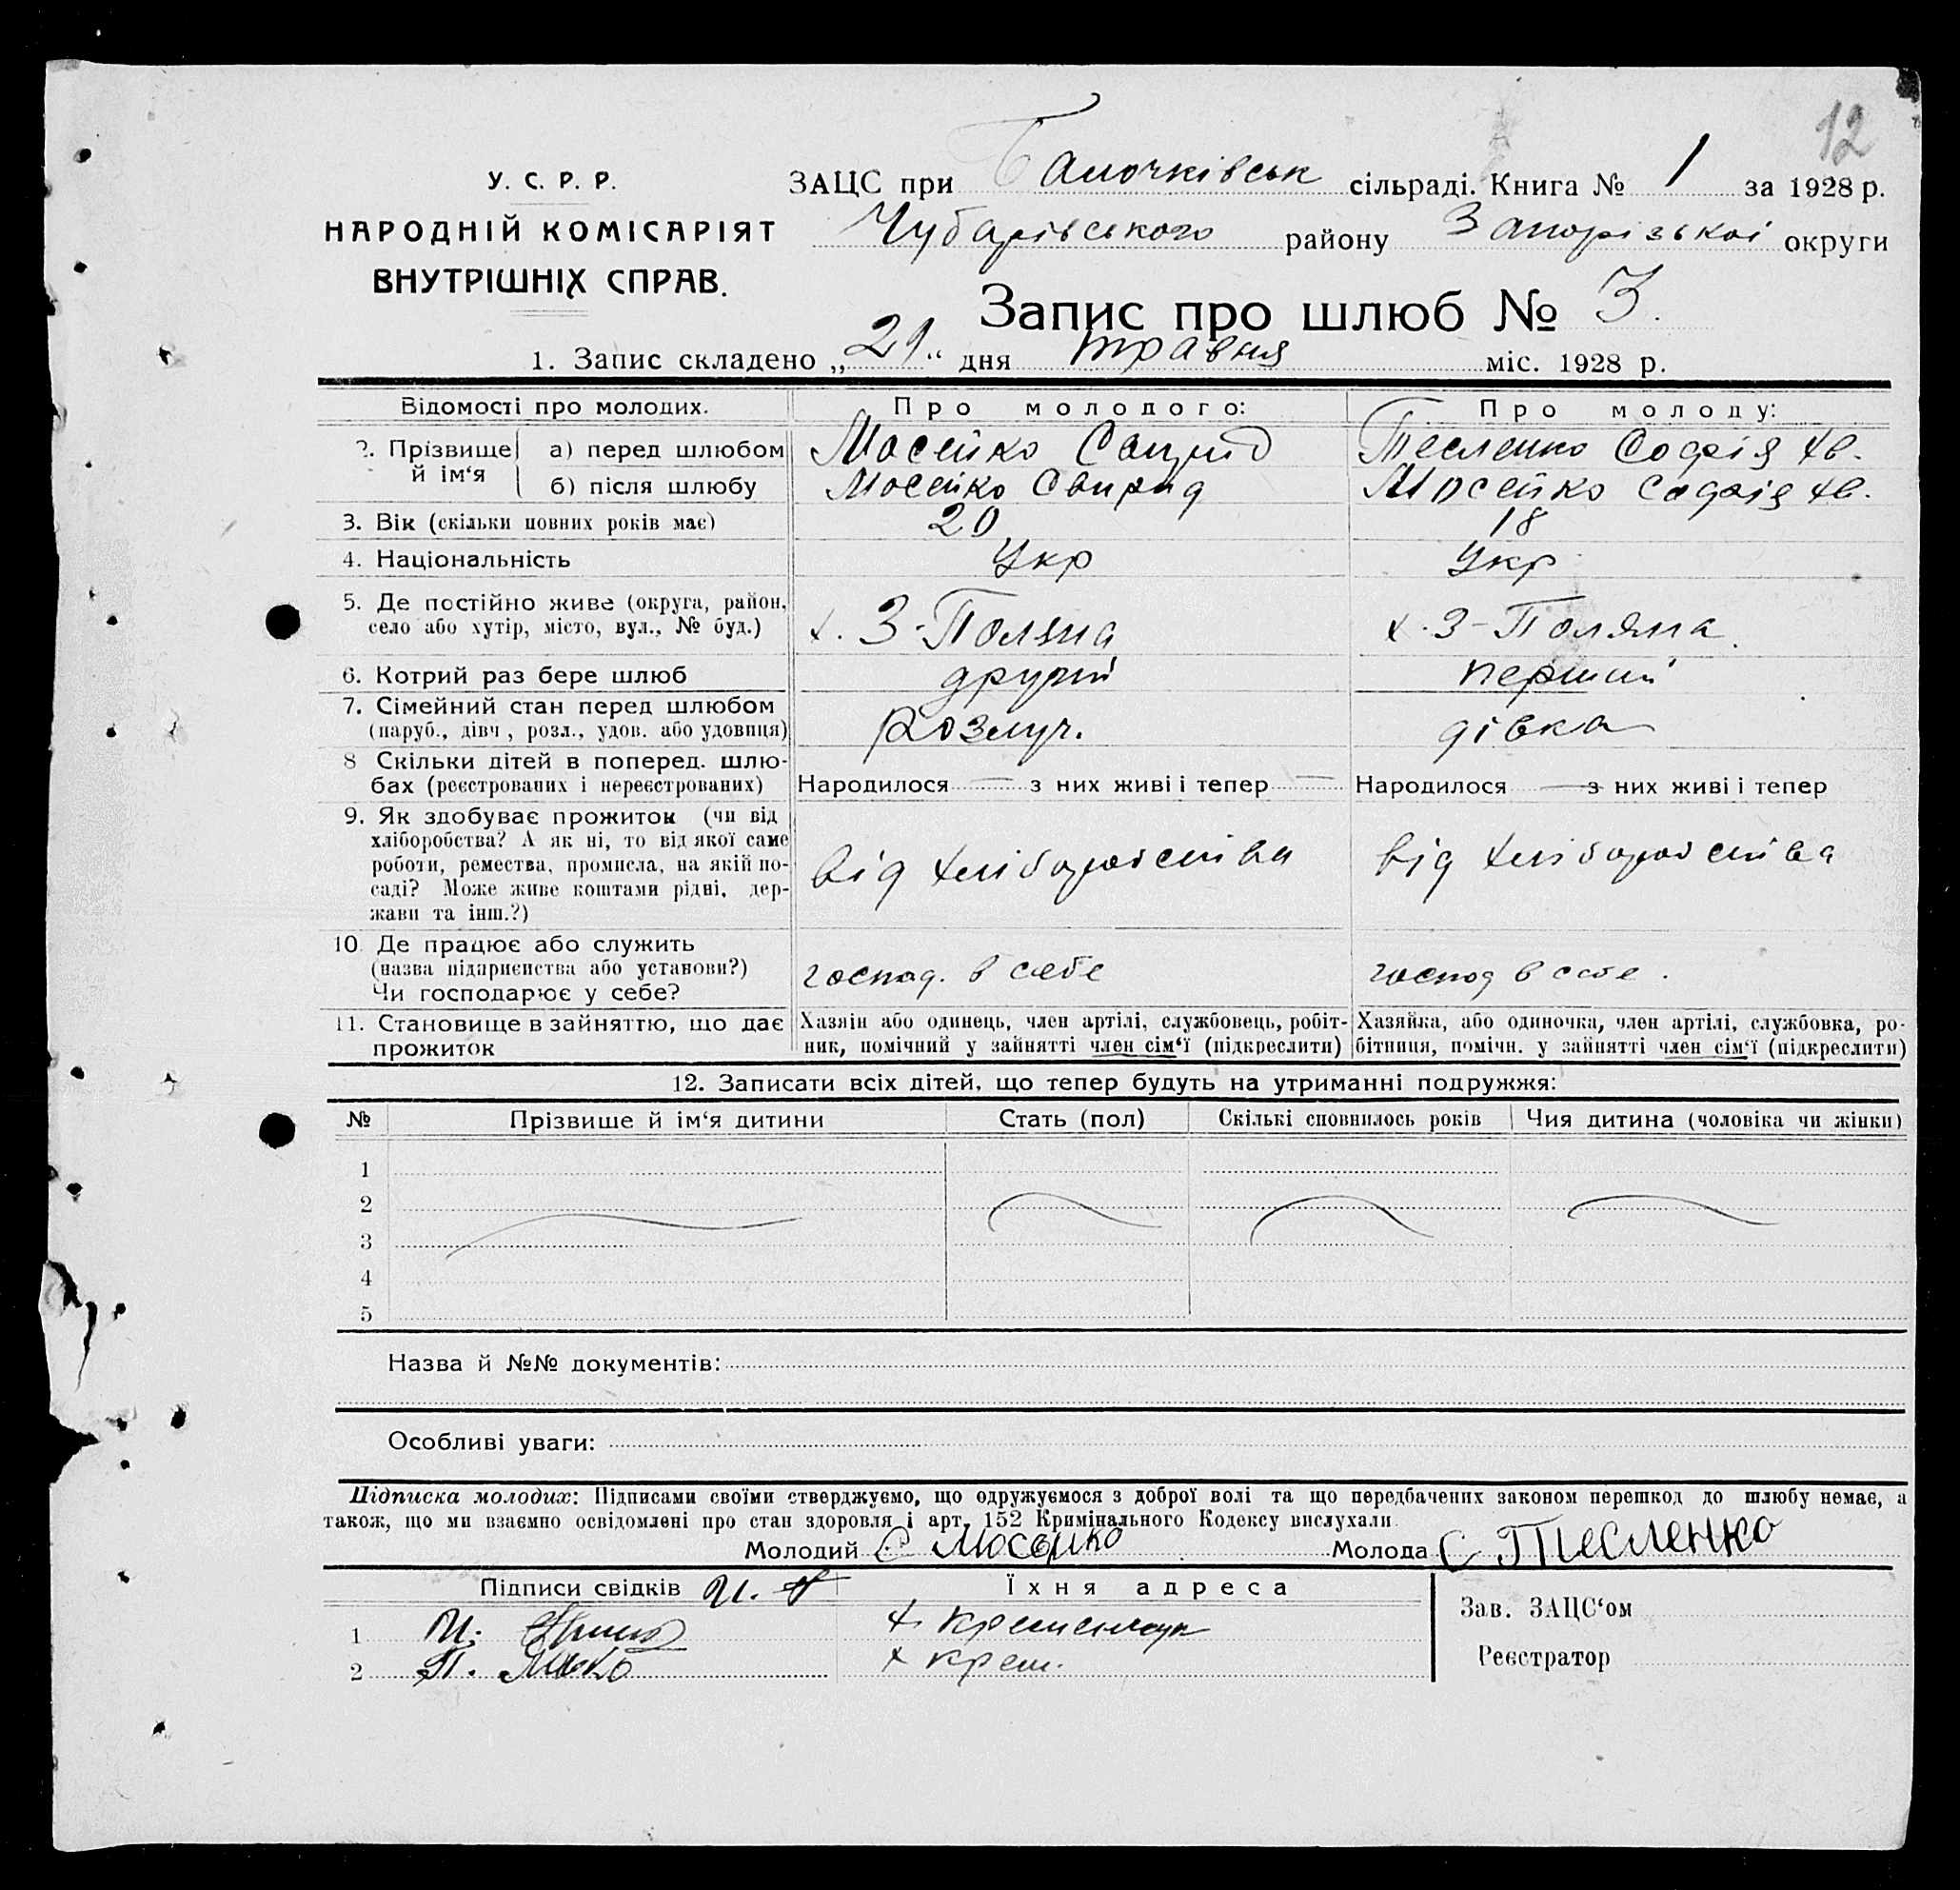 12
У. С. Р. Р.
НАРОДНІЙ КОМІСАРІЯТ
ВНУТРІШНІХ СПРАВ.
ЗАЦС при Бамочківськ сільраді. Книга № 1 за 1928 р.
Чубарівського району Запорізької округи
Запис про шлюб № 3.
1. Запис складено „29“ дня травня міс. 1928 р.
Відомості про молодих. Про молодого: Про молоду:
2. Прізвище й ім‘я а) перед шлюбом Мосейко Свирид Тесленко Софія Хв.
б) після шлюбу Мосейко Свирид Мосейко Софія Хв.
3. Вік (скільки повних років має) 20 18
4. Національність Укр Укр
5. Де постійно живе (округа, район, село або хутір, місто, вул., № буд.) х. З-Поляна х. З-Поляна
6. Котрий раз бере шлюб другий перший
7. Сімейний стан перед шлюбом (паруб., дівч., розл., удов. або удовиця) Розлуч. дівка
8 Скільки дітей в поперед. шлюбах (реєстрованих і нереєстрованих) Народилося — з них живі і тепер — Народилося — з них живі і тепер
9. Як здобуває прожиток (чи від
хліборобства? А як ні, то від якої саме
роботи, ремества, промисла, на якій по-
саді? Може живе коштами рідні, дер-
жави та інш.?) від хліборобства від хліборобства
10. Де працює або служить
(назва підприємства або установи?)
Чи господарює у себе? господ. в себе господ в себе.
11. Становище в зайняттю, що дає прожиток
Хазяїн або одинець, член артілі, службовець, робіт-
ник, помічний у зайнятті член сім‘ї (підкреслити)
Хазяйка, або одиночка, член артілі, службовка, ро-
бітниця, помічн. у зайнятті член сім‘ї (підкреслити)
12. Записати всіх дітей, що тепер будуть на утриманні подружжя:
№ Прізвище й ім‘я дитини Стать (пол) Скількі сповнилось років Чия дитина (чоловіка чи жінки)
1
2
3
4
5
Назва й №№ документів:
Особливі уваги:
Підписка молодих: Підписами своїми стверджуємо, що одружуємося з доброї волі та що передбачених законом перешкод до шлюбу немає, а
також, що ми взаємно освідомлені про стан здоровля і арт. 152 Кримінального Кодексу вислухали.
Молодий С Мосейко Молода С Тесленко
Підписи свідків Їхня адреса
1 И. х Кременчук
2 П. х крем.
Зав. ЗАЦС‘ом
Реєстратор